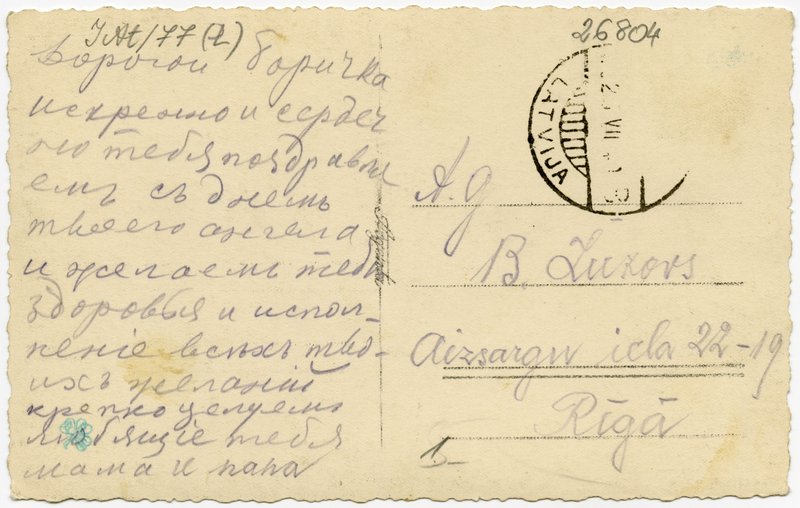 JAt/77 (2)
26804
Дорогой Боричка
искренно и сердеч
но тебя поздравля
емъ съ днемъ
твоего ангела
и желаемъ тебе
здоровья и испол-
ненiе всѣхъ тво-
ихъ желанiй
крепко целуемъ
любящiе тебя
мама и папа
LATVIJA
VII
A. g
B. Zuzovs
Aizsargu iela 22-19
Rīgā